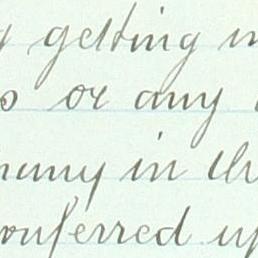 getting
or any
many in
conferred up